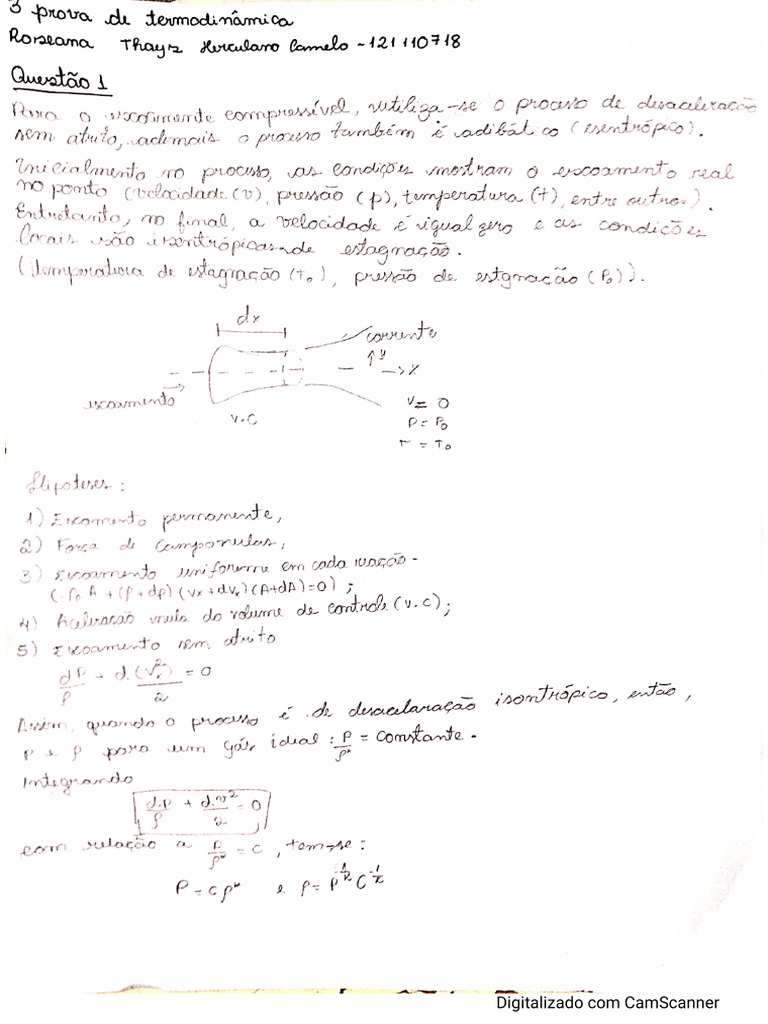 3 prova de termodinâmica
Roseana Thays Herculano Camelo - 121110718
Questão 1
Para o escoamento compressível, utiliza-se o processo de desaceleração
sem atrito, ademais o processo também é adibático (isentrópico).
Inicialmente no processo, as condições mostram o escoamento real
no ponto (velocidade (v), pressão (p), temperatura (t), entre outros).
Entretanto, no final, a velocidade é igual zero e as condições
locais são isentrópicas de estagnação.
(Temperatura de estagnação (T₀), pressão de estgnação (P₀)).
dx
corrente
y
x
escoamento
v.c
v = 0
P = P₀
T = T₀
Hipoteses:
1) Escoamento permanente,
2) Força de campo nulas,
3) Escoamento uniforme em cada seação.
(-ρ₀ A + (ρ + dρ) (vx + dvₓ) (A + dA) = 0) ;
4) Aceleração nula do volume de controle (v.c);
5) Escoamento sem atrito
dP/ρ + d(Vₓ²)/2 = 0
Assim, quando o processo é de desacelaração isontrópico, então,
P e ρ para um gás ideal : P/ρᵏ = constante.
Integrando
dP/ρ + dv²/2 = 0
com relação a P/ρᵏ = C, tem-se:
P = Cρᵏ e ρ = P^(1/k) C^(-1/k)
Digitalizado com CamScanner